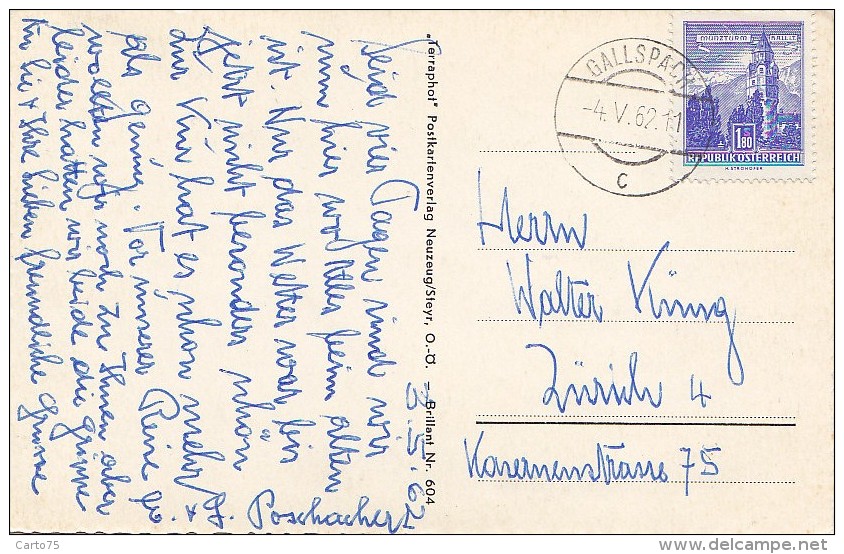 3.5.62
Seid vier Tagen sind wir
nun hier wo Alles beim alten
ist. Nur das Wetter war bis
jetzt nicht besonders schön
zur Kur hat es schon mehr
als genug. Vor unserer Reise
wollten wir noch zu Ihnen aber
leider hatten wir beide die Grippe
für Sie + Ihre Lieben freundliche Grüsse
Poschacher
"Terraphot" Postkartenverlag Neuzeug/Steyr, O.-Ö. – Brillant Nr. 604
MÜNZTURM HALL I.T.
1.80
REPUBLIK ÖSTERREICH
H. STROHOFER
GALLSPACH
-4.V.62.11
c
Herrn
Walter Küng
Zürich 4
Kasernenstrasse 75
Carto75
www.delcampe.net